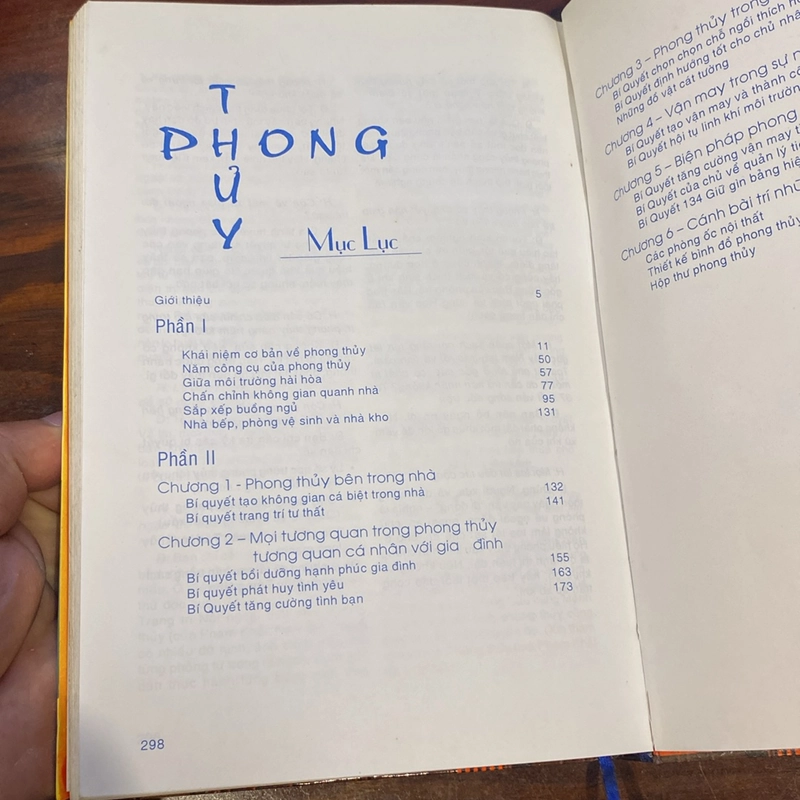 PHONG
THỦY
Mục Lục
Giới thiệu 5
Phần I
Khái niệm cơ bản về phong thủy 11
Năm công cụ của phong thủy 50
Giữa môi trường hài hòa 57
Chấn chỉnh không gian quanh nhà 77
Sắp xếp buồng ngủ 95
Nhà bếp, phòng vệ sinh và nhà kho 131
Phần II
Chương 1 - Phong thủy bên trong nhà
Bí quyết tạo không gian cá biệt trong nhà 132
Bí quyết trang trí tư thất 141
Chương 2 – Mọi tương quan trong phong thủy
tương quan cá nhân với gia đình
Bí quyết bồi dưỡng hạnh phúc gia đình 155
Bí quyết phát huy tình yêu 163
Bí Quyết tăng cường tình bạn 173
298
Chương 3 – Phong thủy trong
Bí Quyết chọn chọn chỗ ngồi thích
Bí Quyết định hướng tốt cho chủ
Những đồ vật cát tường
Chương 4 – Vận may trong sự
Bí Quyết tạo vận may và thành
Bí Quyết hội tụ linh khí môi
Chương 5 – Biện pháp phong
Bí Quyết tăng cường vận may
Bí Quyết của chủ về quản lý
Bí Quyết 134 Giữ gìn bảng
Chương 6 – Cánh bài trí
Các phòng ốc nội thất
Thiết kế bình đồ phong thủy
Hộp thư phong thủy